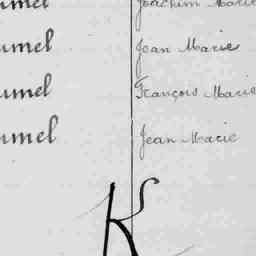 umel Joachim Marie
umel Jean Marie
umel François Marie
umel Jean Marie
K